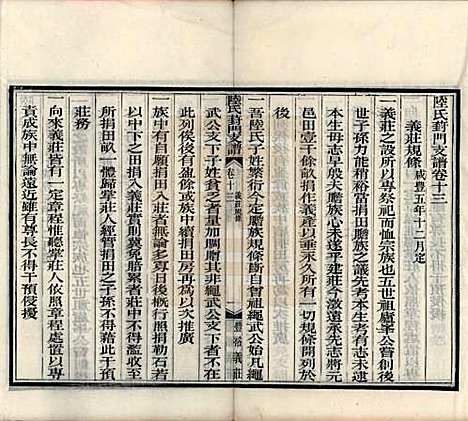 陸氏葑門支譜卷十三
義莊規條 咸豐五年十二月定
義莊之設所以專祭祀而恤宗族也五世祖肇公嘗創後
世子孫力能稍裕當捐田贍族之議先考本生考有志未
本生母志早殷夫贍族小未遂平建莊今敬遵承先志將元
邑田壹千餘畝捐作義產以垂永久所有一切規條開列於
後
一吾陸氏子姓繁衍今定贍族規條斷自會祖繩武公始凡繩
武公支下子姓貧乏者量加賙贍其非繩武公支下者不在
此列俟後有盈餘或族中續捐田房再行推廣
一族中有樂捐田入莊者無論多寡日後槪行照捐勒石若有
以中下之田捐入義莊實則冀免賠累者莊中不得濫收至
所捐田畝一體歸掌莊人經管捐田之子孫不得藉此干預
莊務
一向來義莊皆有一定章程惟聽掌莊人依照章程處置以專
責成族中無論遠近雖有尊長不得干預侵擾
陸氏葑門支譜
卷十三 義莊規條
一
豐裕義莊